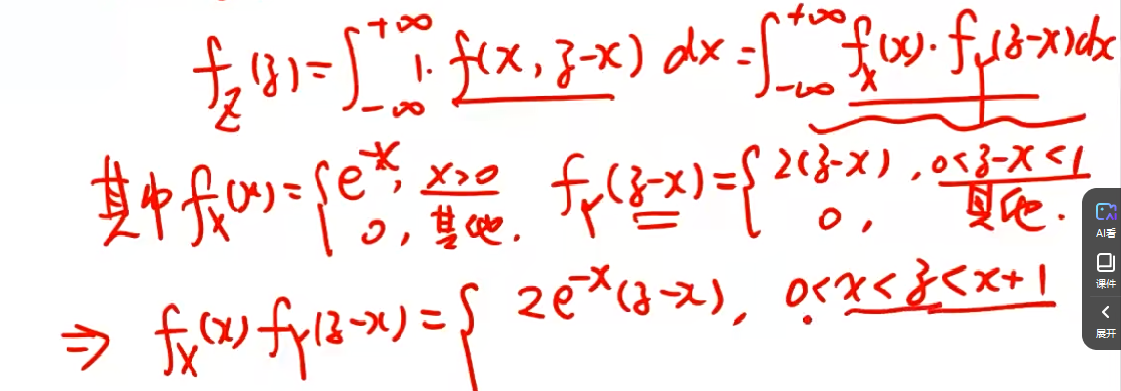 f_Z(z)=∫_{-∞}^{+∞} 1·f(x, z-x) dx=∫_{-∞}^{+∞} f_X(x)·f_Y(z-x)dx
其中 f_X(x)={ e^{-x}, x>0 ; 0, 其他. f_Y(z-x)={ 2(z-x), 0<z-x<1 ; 0, 其他.
⇒ f_X(x) f_Y(z-x)={ 2e^{-x}(z-x), 0<x<z<x+1
AI看
课件
展开